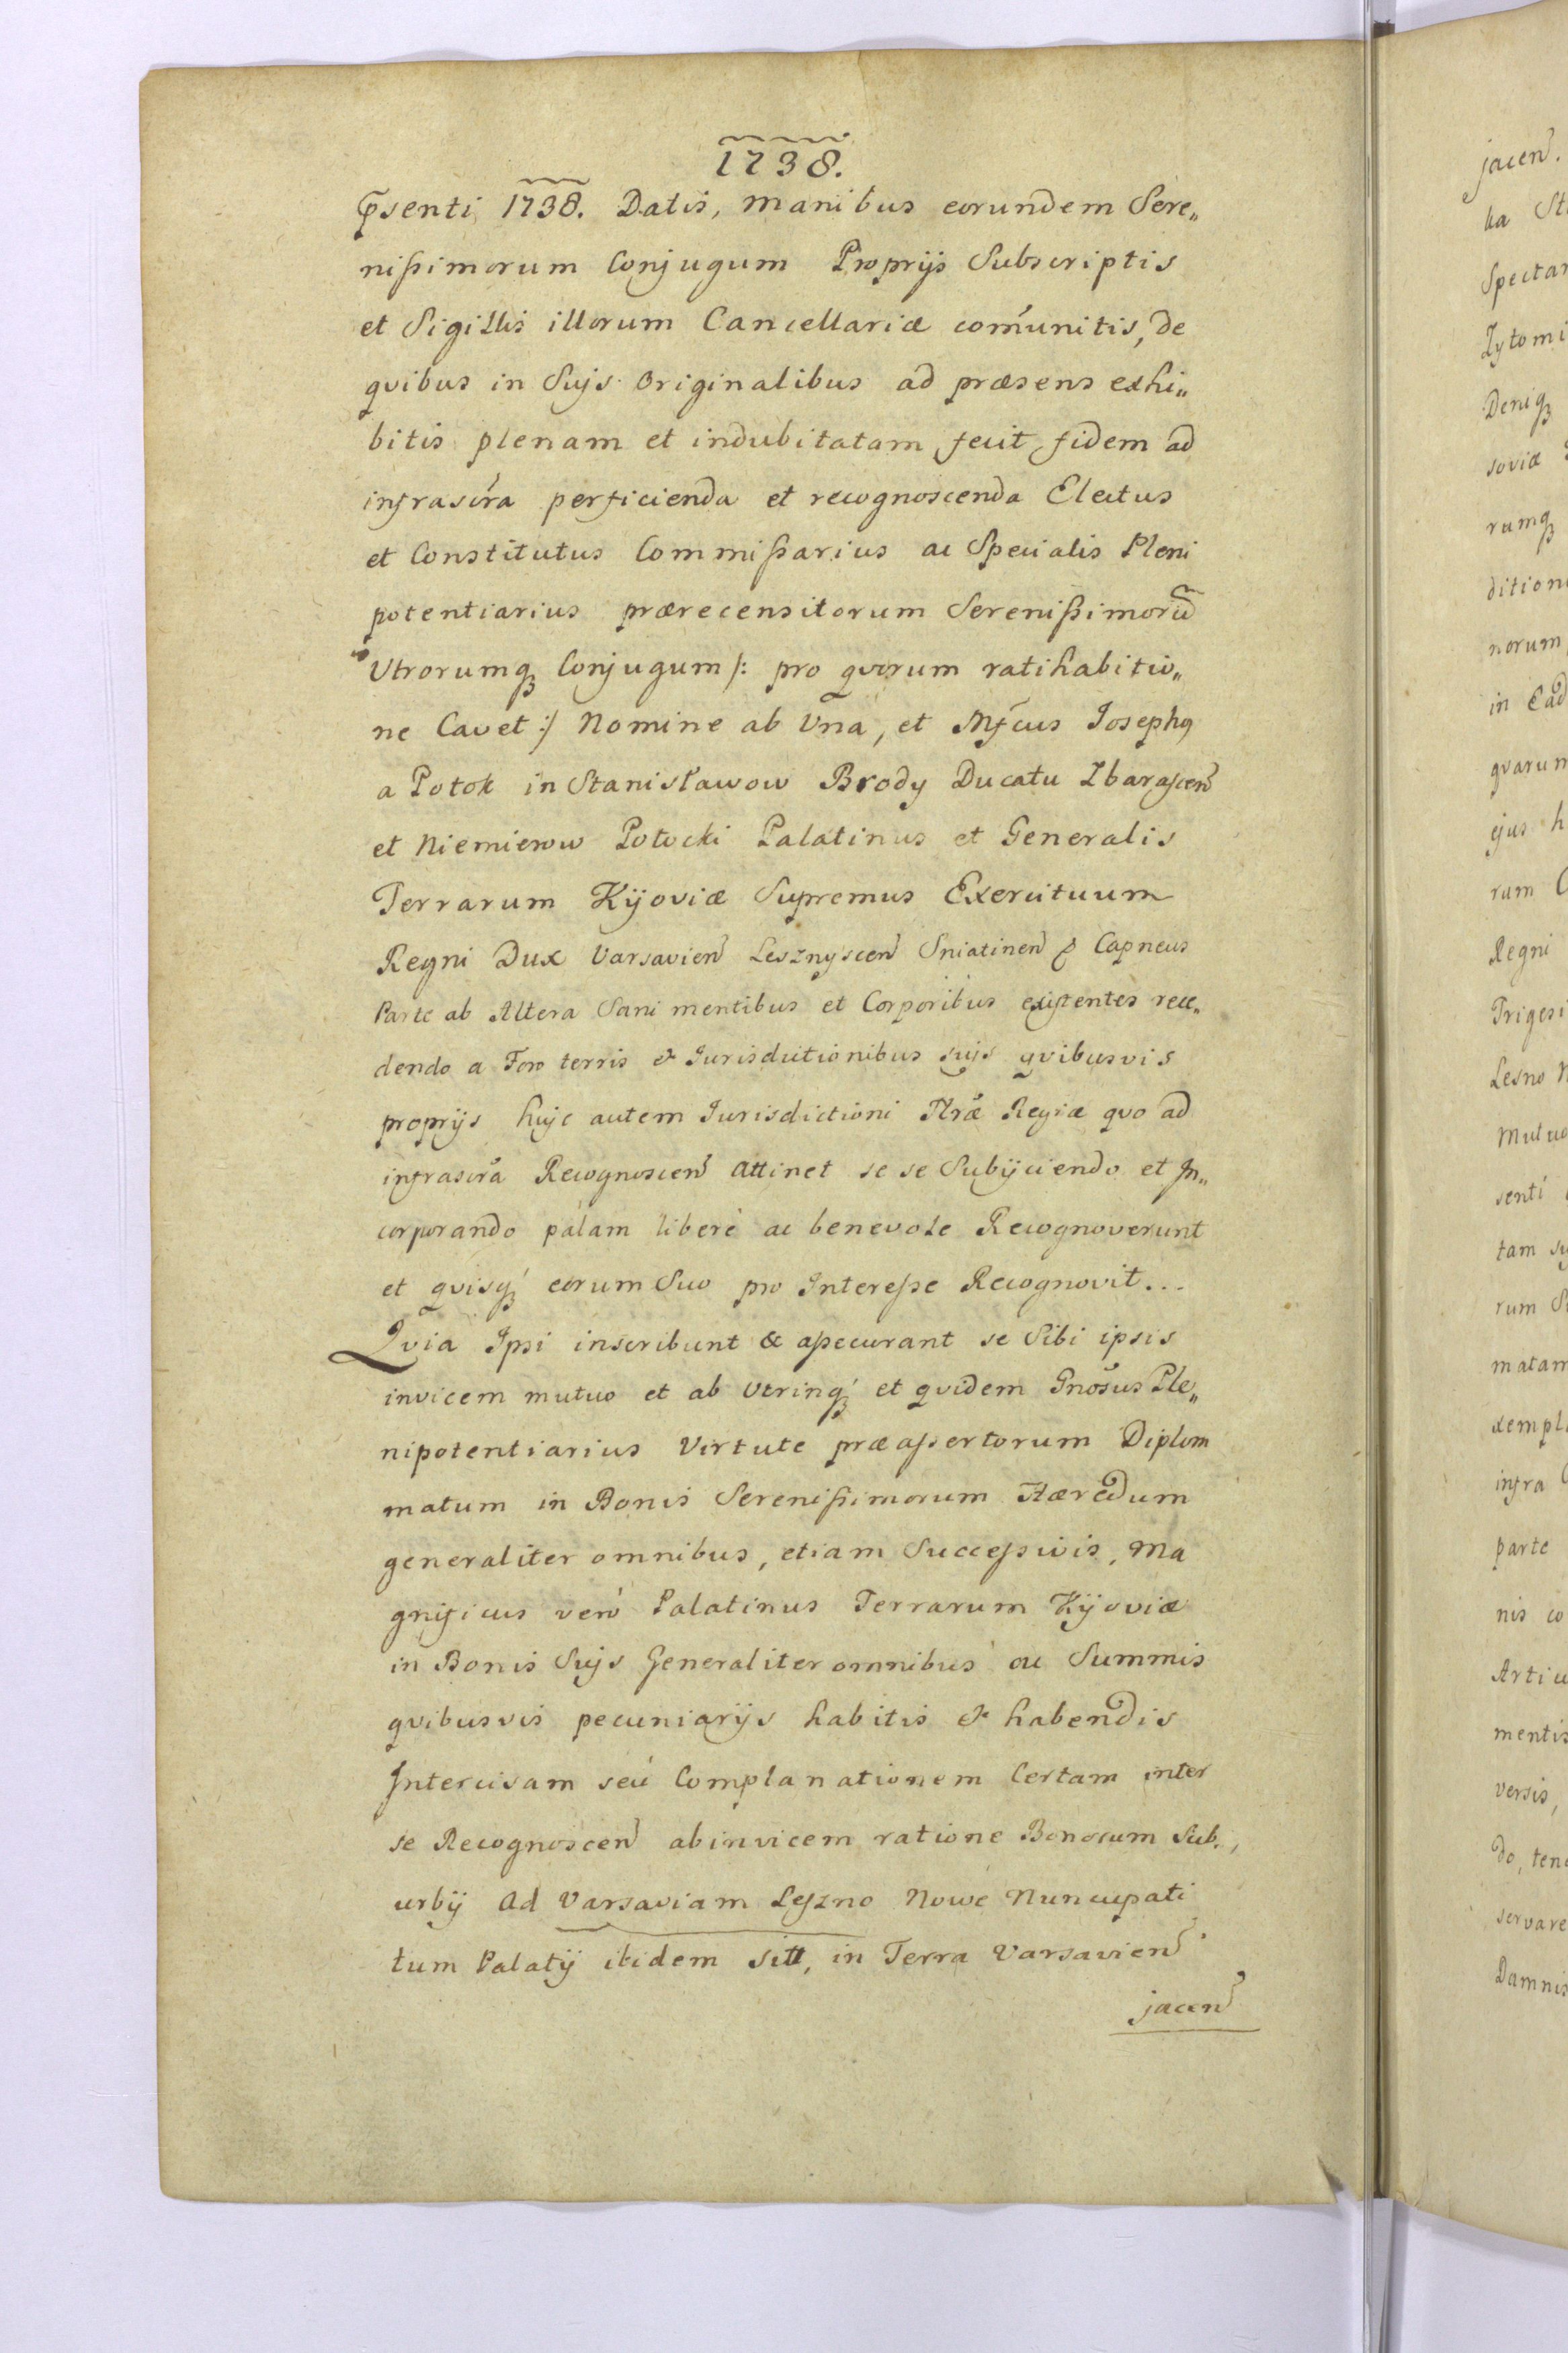 1738.
p̄senti 1738. Datis, manibus eorundem Sere„
nißimorum Conjugum Proprijs Subscriptis
et Sigillis illorum Cancellariæ com̃unitis, de
qvibus in Sujs Originalibus ad præsens exhi„
bitis plenam et indubitatam fecit fidem ad
infrascr̃a perficienda et recognoscenda Electus
et Constitutus Commißarius ac Specialis Pleni
potentiarius prærecensitorum Serenißimorũ
Utrorumqꝫ Conjugum /: pro qvorum ratihabitio„
ne Cavet :/ Nomine ab Una, et Mf̃cus Josephꝯ
a Potok in Stanisławow Brody Ducatu Zbarascen̄
et Niemierow Potocki Palatinus et Generalis
Terrarum Kijoviæ Supremus Exercituum
Regni Dux Varsavien̄ Lesznyscen̄ Sniatinen̄ & Capneus
Parte ab Altera Sani mentibus et Corporibus existentes rece„
dendo a Foro terris & Jurisdictionibus sujs qvibusvis
proprijs hujc autem Jurisdictioni Ttræ̃ Regiæ qvo ad
infrascr̃a Recognoscen̄ attinet se se Subijciendo et In„
corporando palam liberè ac benevole Recognoverunt
et qvisqꝫ eorum Suo pro Intereße Recognovit...
Qvia Ipsi inscribunt & aßecurant se Sibi ipsis
invicem mutuo et ab utrinqꝫ et qvidem Gnõsus Ple„
nipotentiarius Virtute præaßertorum Diplom
matum in Bonis Serenißimorum Hæredum
generaliter omnibus, etiam Succeßivis, Ma
gnificus verò Palatinus Terrarum Kijoviæ
in Bonis Sujs Generaliter omnibus ac Summis
qvibusvis pecuniarijs habitis & habendis
Intercisam seú Complanationem Certam inter
se Recognoscen̄ abinvicem ratione Bonorum Sub„
urbij ad Varsaviam Leszno Nowe Nuncupati
tum Palatij ibidem sitt, in Terra Varsavien̄
jacen̄
jacen̄.
Spectan
Zytomi
Deniqꝫ
soviæ
rumqꝫ
ditioni
norum
in Ead
qvarum
ejus h
rum C
Regni
Trigesi
Lesno N
Mutuo
senti
tam su
rum S
matam
xempl
infra
parte
nis co
Articu
mentis
versis,
do, tene
servare
Damnis